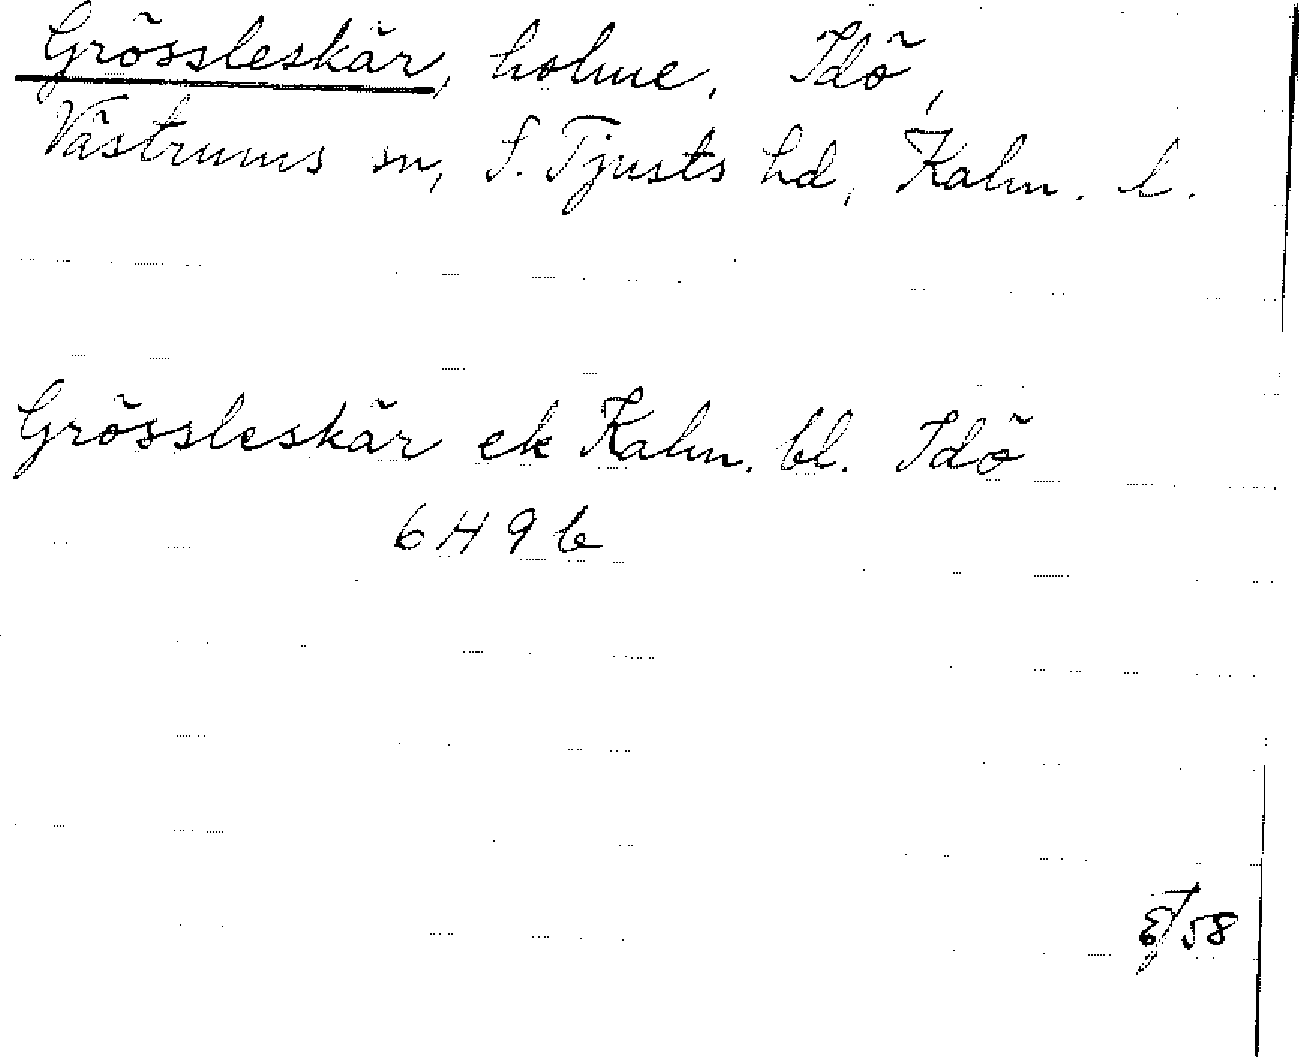 Grössleskär, holme, Idö,
Västrums sn, S. Tjusts hd, Kalm. l.
Grössleskär ek Kalm. bl. Idö
6 H 9 b
58